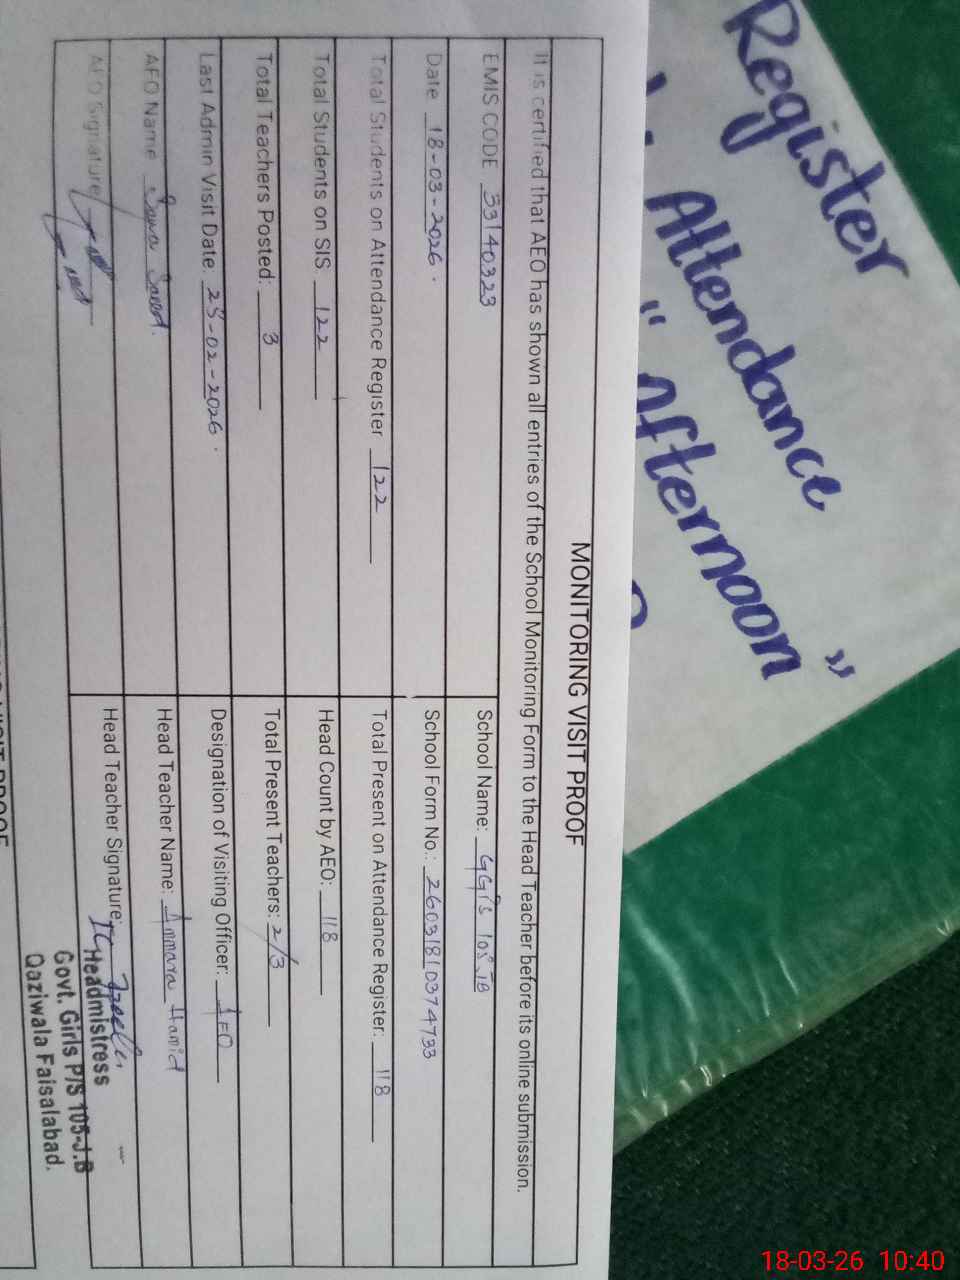 MONITORING VISIT PROOF
It is certified that AEO has shown all entries of the School Monitoring Form to the Head Teacher before its online submission.
EMIS CODE 33140323
School Name: GGPS 105 JB
Date 18-03-2026.
School Form No.: 2603181 0374733
Total Students on Attendance Register 122
Total Present on Attendance Register: 118
Total Students on SIS 122
Head Count by AEO: 118
Total Teachers Posted: 3
Total Present Teachers: 2/3
Last Admin Visit Date. 25-02-2026.
Designation of Visiting Officer: AEO
AEO Name Saeed.
Head Teacher Name: Ammara Hamid
AEO Signature
Head Teacher Signature:
Headmistress
Govt. Girls P/S 105-J.B
Qaziwala Faisalabad.
Register
Attendance
"Afternoon"
18-03-26 10:40